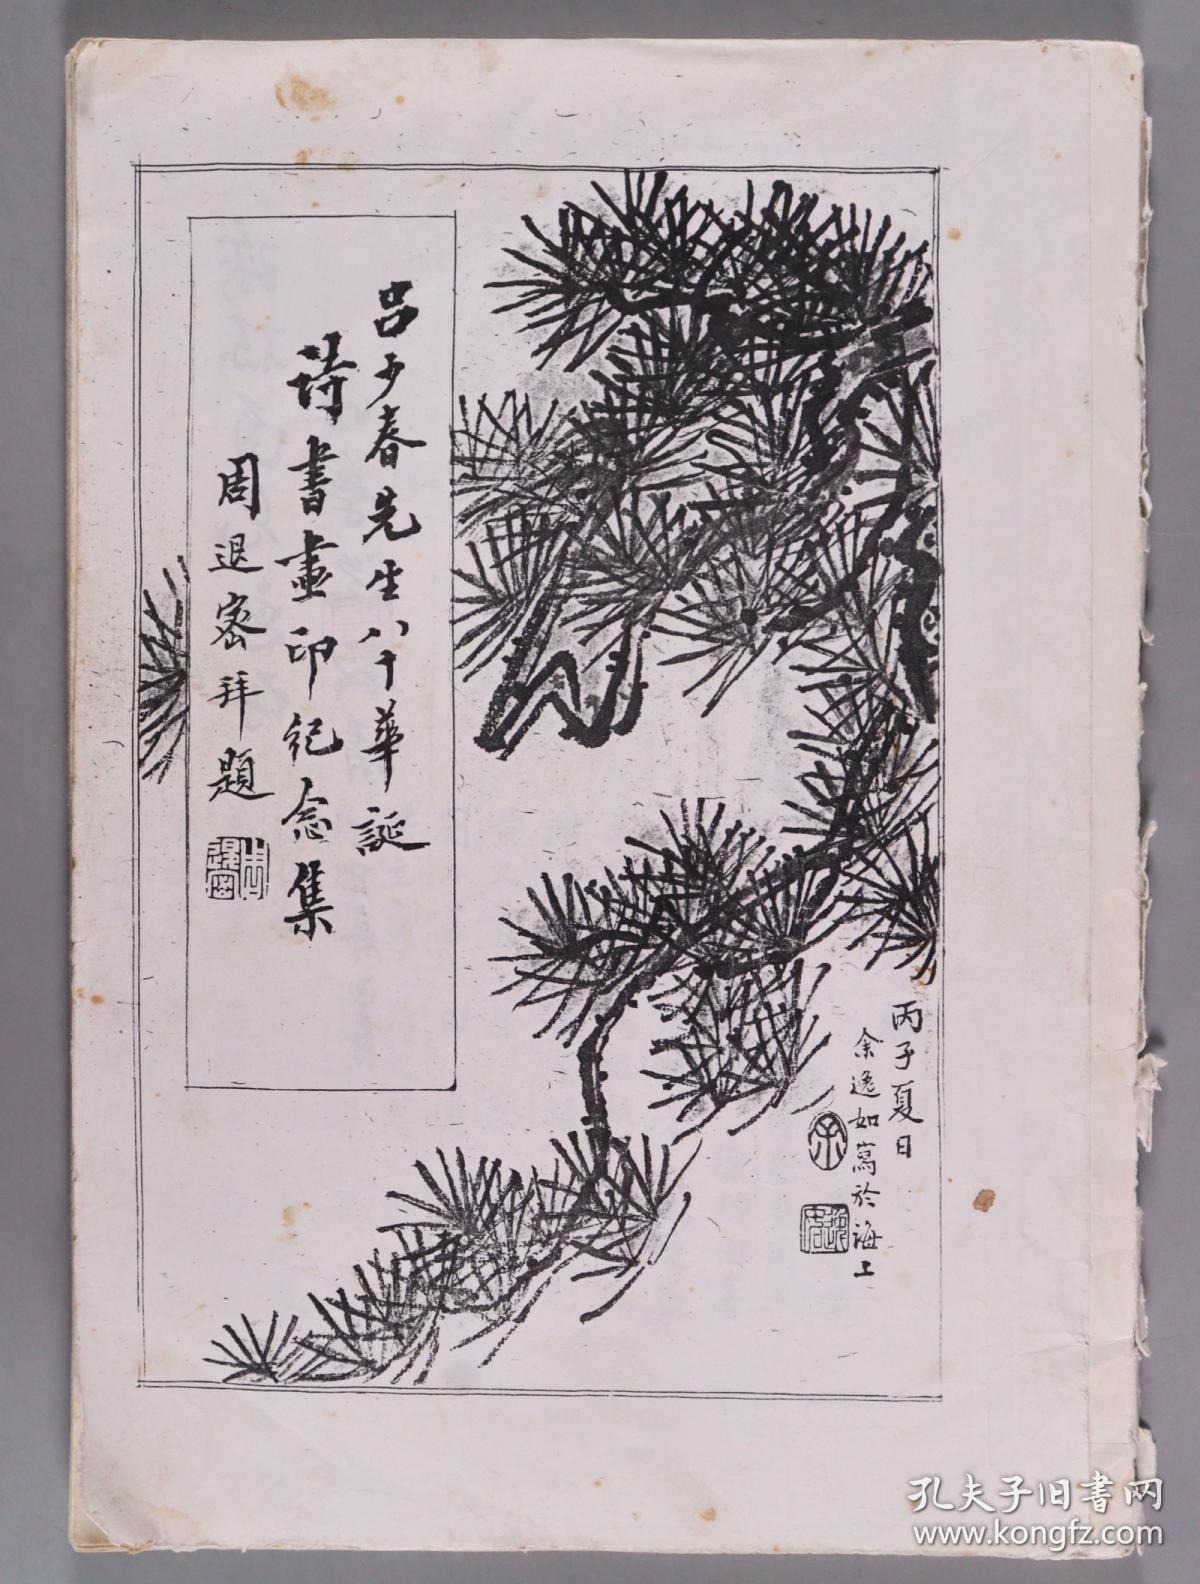 呂少春先生八十華誕
詩書畫印紀念集
周退密拜題
丙子夏日
余逸如寫於海上
孔夫子旧書网
www.kongfz.com